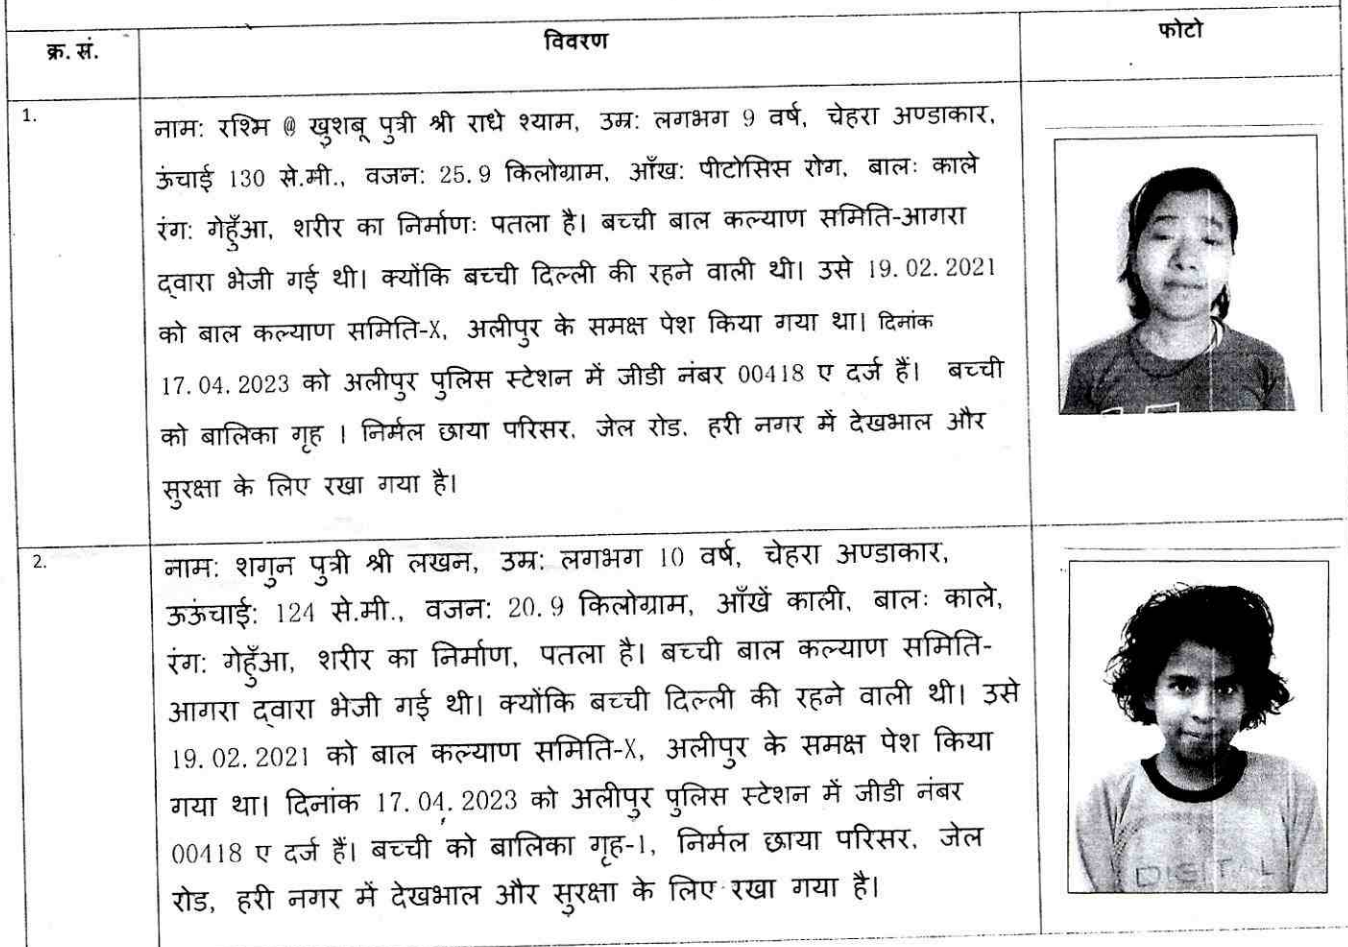 क्र. सं. विवरण फोटो
1.
नाम: रश्मि @ खुशबू पुत्री श्री राधे श्याम, उम्र: लगभग 9 वर्ष, चेहरा अण्डाकार,
ऊंचाई 130 से.मी., वजन: 25.9 किलोग्राम, आँख: पीटोसिस रोग, बालः काले
रंग: गेहुँआ, शरीर का निर्माणः पतला है। बच्ची बाल कल्याण समिति-आगरा
द्वारा भेजी गई थी। क्योंकि बच्ची दिल्ली की रहने वाली थी। उसे 19.02.2021
को बाल कल्याण समिति-X, अलीपुर के समक्ष पेश किया गया था। दिनांक
17.04.2023 को अलीपुर पुलिस स्टेशन में जीडी नंबर 00418 ए दर्ज हैं। बच्ची
को बालिका गृह । निर्मल छाया परिसर, जेल रोड, हरी नगर में देखभाल और
सुरक्षा के लिए रखा गया है।
2.
नाम: शगुन पुत्री श्री लखन, उम्र: लगभग 10 वर्ष, चेहरा अण्डाकार,
ऊऊंचाई: 124 से.मी., वजन: 20.9 किलोग्राम, आँखें काली, बालः काले,
रंग: गेहुँआ, शरीर का निर्माण, पतला है। बच्ची बाल कल्याण समिति-
आगरा द्वारा भेजी गई थी। क्योंकि बच्ची दिल्ली की रहने वाली थी। उसे
19.02.2021 को बाल कल्याण समिति-X, अलीपुर के समक्ष पेश किया
गया था। दिनांक 17.04.2023 को अलीपुर पुलिस स्टेशन में जीडी नंबर
00418 ए दर्ज हैं। बच्ची को बालिका गृह-1, निर्मल छाया परिसर, जेल
रोड, हरी नगर में देखभाल और सुरक्षा के लिए रखा गया है।
DIGITAL